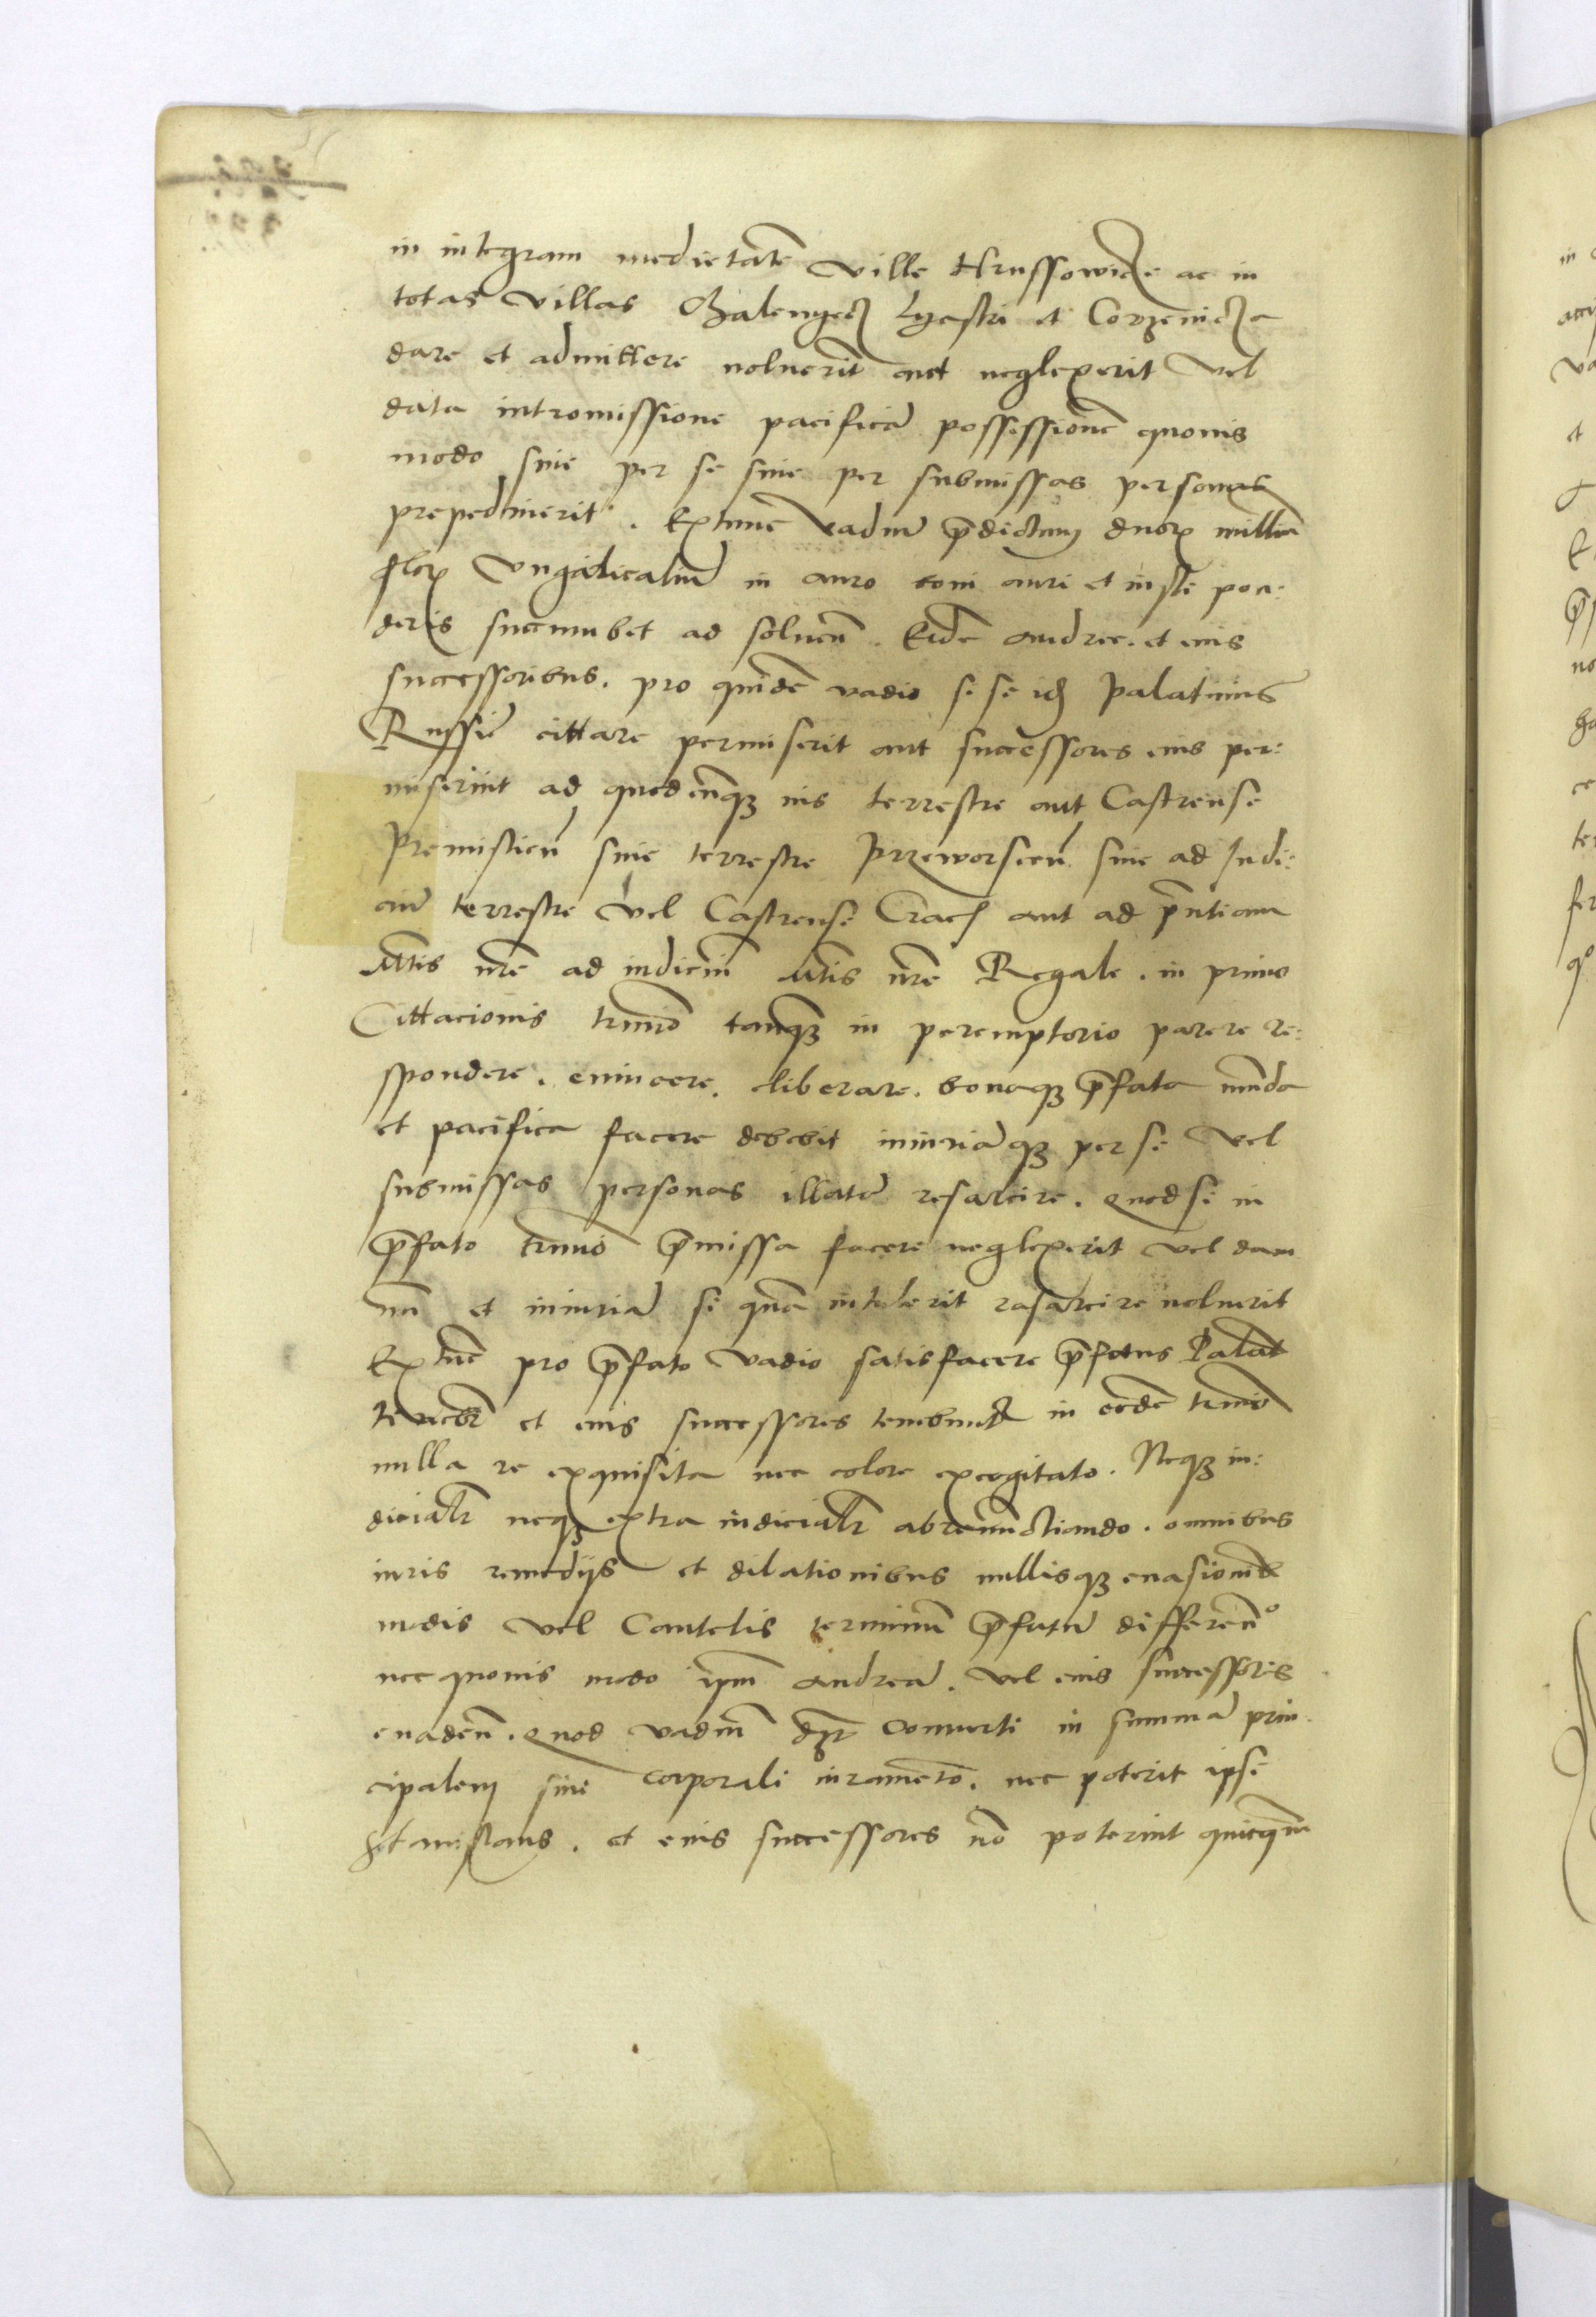 in integram medietatē ville Hrussowicze ac in
totas villas Chalenyecz Lyastri et Corzenicza
dare et admittere noluerit aut neglexerit vel
data intromissione pacificā possessionē quouis
modo siue per se siue per submissas personas
prepediuerit. Extunc vadiū p̄dictum duorꝝ milliū
florꝝ Vngaricaliū in auro boni auri et iusti pon:
deris succumbet ad soluen̄. Eidē Andree. et eius
successoribus. pro quidē vadio si se idē Palatinus
Russie cittare permiserit aut successores eius per:
miserint ad quodcūqꝫ ius terrestre aut Castrense
Premislien̄ siue terrestre Przeworscen̄ siue ad Iudi:
ciū terrestre vel Castrense Crac̄ aut ad p̄ntiam
Mtis nr̄e ad iudiciū Mtis nr̄e Regale. in primo
Cittacionis tr̄mino tanqꝫ in peremptorio parere re:
spondere. euincere. eliberare. bonaqꝫ p̄fata munda
et pacifica facere debebit iniuriāqꝫ per se vel
submissas personas illatā resarcire. Quod si in
p̄fato tr̄mino p̄missa facere neglexerit vel dam
nū et iniuriā si quā intulerit resarcire noluerit
Extūc pro p̄fato vadio satisfacere p̄fatus Palat̄
tenebit̄ et eius successores tenebunt̄ in eodē tr̄mino
nulla re exquisita nec colore excogitato. Neqꝫ iu:
dicialr̄ neqꝫ extra iudicialr̄ abrenunctiando. omnibus
iuris remedijs et dilationibus nullisqꝫ euasionū
modis vel Cautelis terminū p̄fatū differen̄o
nec quouis modo ipm̄ Andreā. vel eius successores
euaden̄. Quod vadiū conuerti in summā prin:
cipalem sine corporali iuramēto. nec poterit ipse
Stanislaus. et eius successores nō poterint quicqm̄